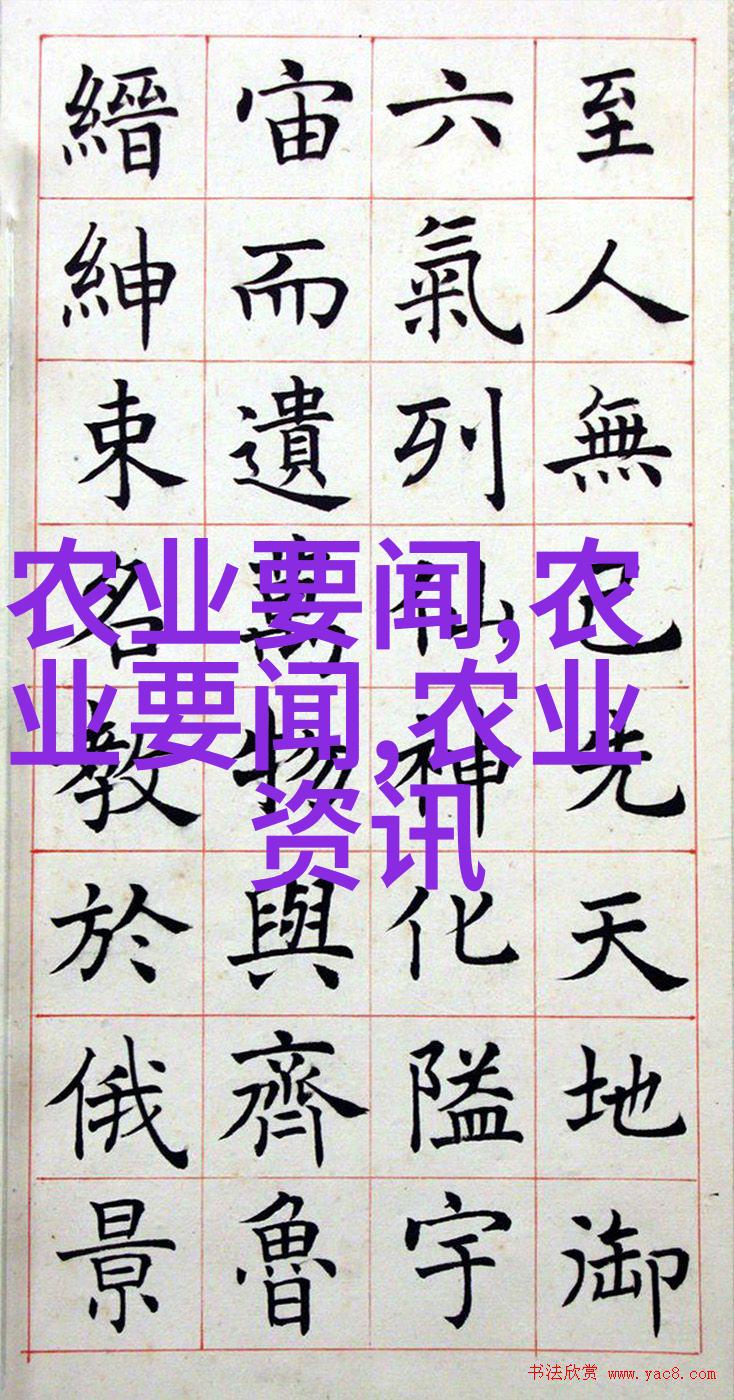 至人無己先天地御
六氣列仙神化隘宇
宙而遺萬物與齊魯
縉紳束名教於俄景
农业要闻,农
业要闻,农业
资讯
书法欣赏 www.yac8.com